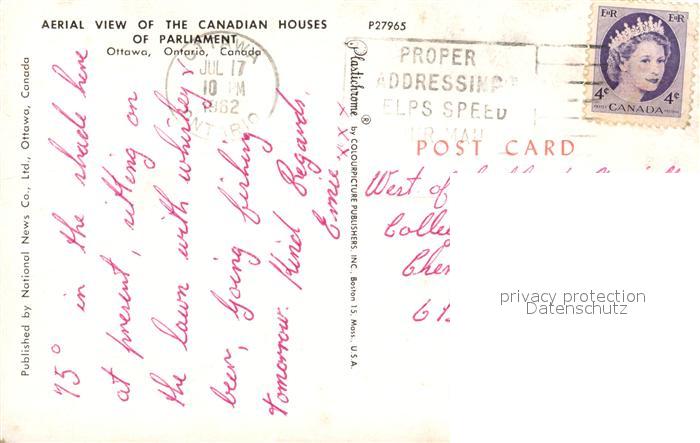 AERIAL VIEW OF THE CANADIAN HOUSES
OF PARLIAMENT
Ottawa, Ontario, Canada
P27965
OTTAWA
JUL 17
10 PM
1962
ONTARIO
PROPER
ADDRESSING
HELPS SPEED
UR MAIL
E II R E II R
4¢ 4¢
POSTES CANADA POSTAGE
POST CARD
Published by National News Co., Ltd., Ottawa, Canada
75° in the shade here
at present, sitting on
the lawn with whiskey &
beer, going fishing
tomorrow. Kind Regards.
Ernie
x x x
Plastichrome ® by COLOURPICTURE PUBLISHERS, INC., Boston 15, Mass., U.S.A.
West of
Colle
Che
61
privacy protection
Datenschutz